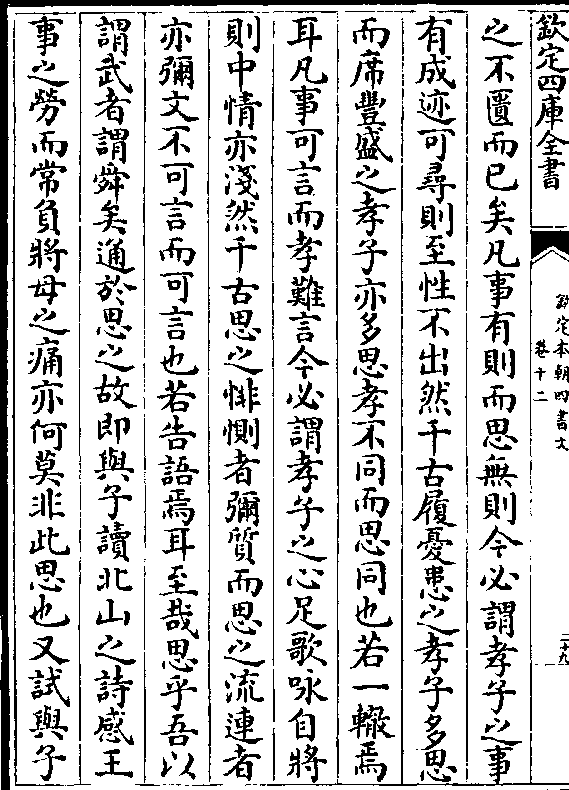 欽定四庫全書
欽定本朝四書文
卷十二
二十九
之不匱而已矣凡事有則而思無則今必謂孝子之事
有成迹可尋則至性不出然千古履憂患之孝子多思
而席豐盛之孝子亦多思孝不同而思同也若一轍焉
耳凡事可言而孝難言今必謂孝子之心足歌咏自將
則中情亦淺然千古思之悱惻者彌質而思之流連者
亦彌文不可言而可言也若告語焉耳至哉思乎吾以
謂武者謂舜矣通於思之故即與子讀北山之詩感王
事之勞而常負將母之痛亦何莫非此思也又試與子